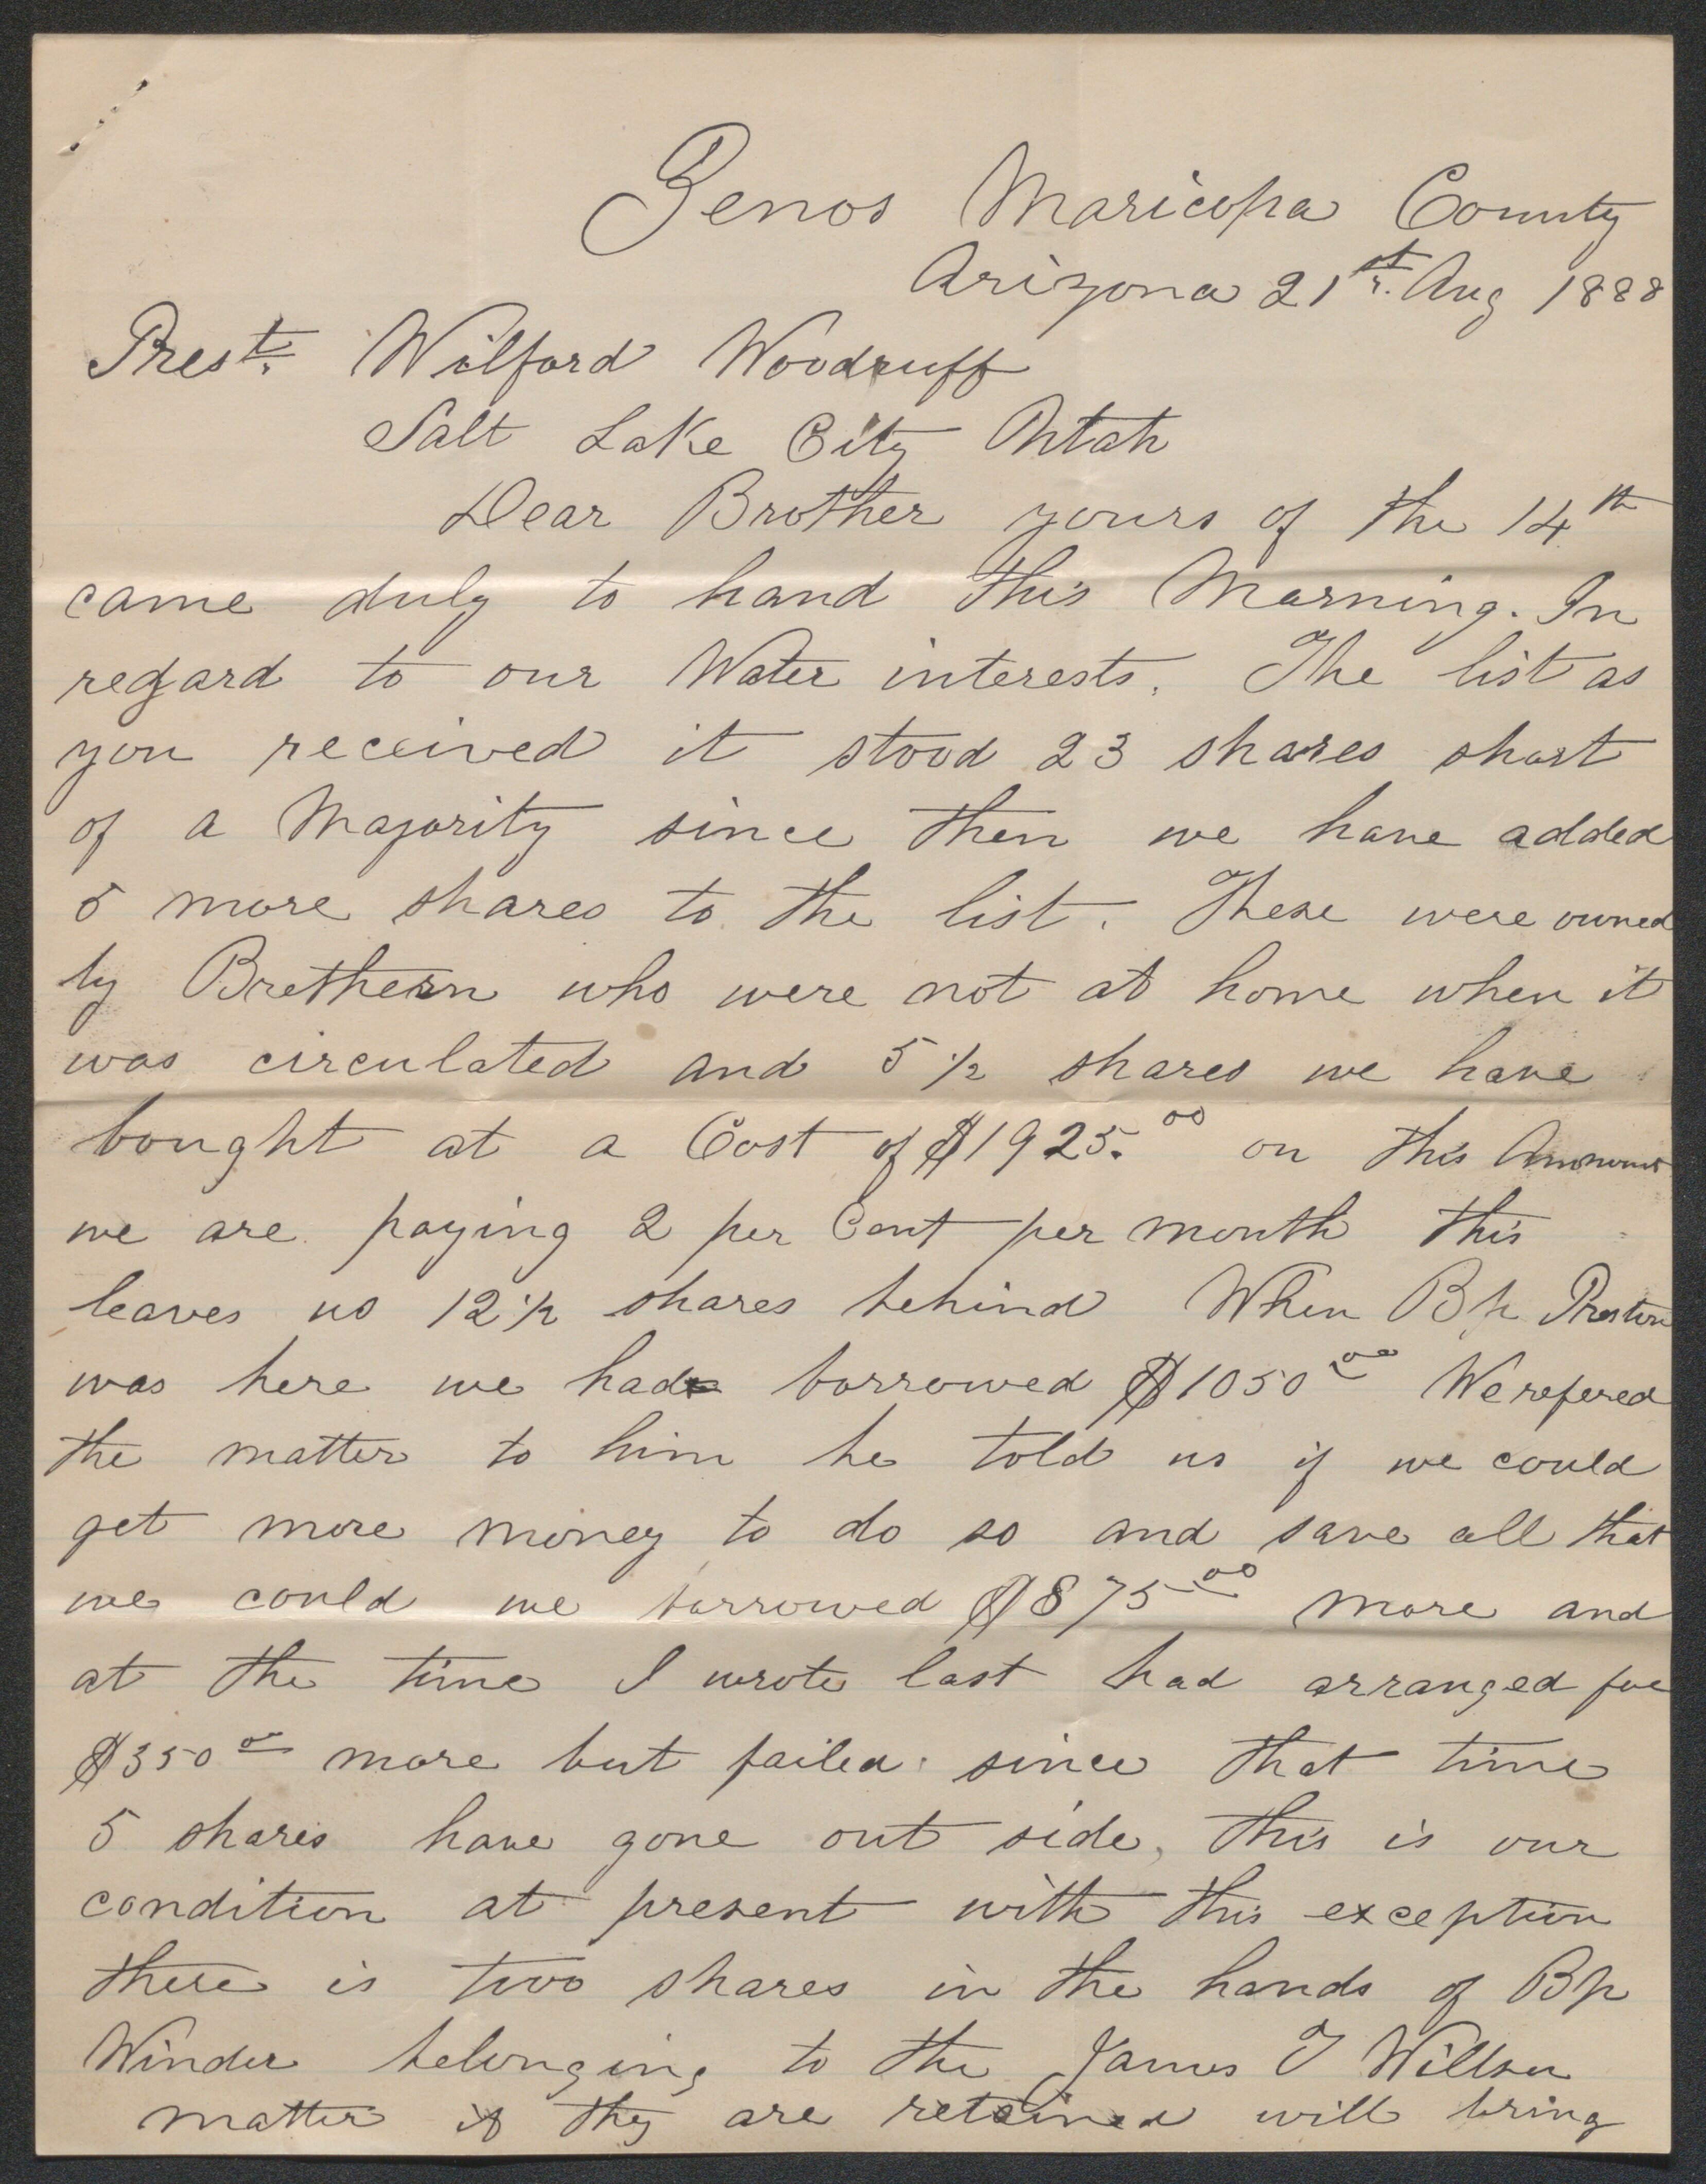 Zenos Maricopa County
Arizona 21st. Aug 1888
Prest. Wilford Woodruff
Salt Lake City Utah
Dear Brother yours of the 14th
came duly to hand this Morning. In
regard to our Water interests. The list as
you received it stood 23 shares short
of a Majority since then we have added
5 more shares to the list. These were owned
by Brethern who were not at home when it
was circulated and 5 1/2 shares we have
bought at a Cost of $1925.00 on this Ammount
we are paying 2 per Cent per month this
leaves us 12 1/2 shares behind When Bp Preston
was here we had borrowed $1050.00 We refered
the matter to him he told us if we could
get more money to do so and save all that
we could we borrowed $875.00 more and
at the time I wrote last had arranged for
$350.00 more but failed. since that time
5 shares have gone out side, this is our
condition at present with this exception
there is two shares in the hands of Bp
Winder belonging to the James T Willson
matter if they are retained will bring